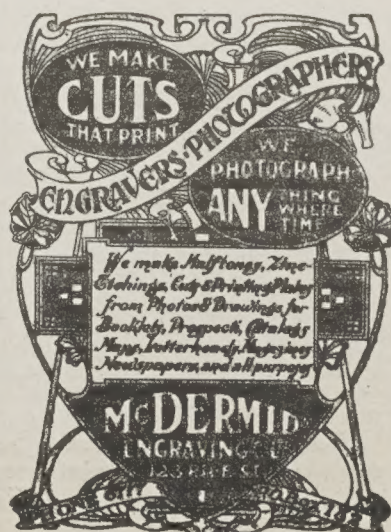 WE MAKE
CUTS
THAT PRINT
ENGRAVERS·PHOTOGRAPHERS
WE
PHOTOGRAPH
ANY THING
WHERE
TIME
We make Halftones, Zinc-
Etchings, Cuts & Printing Plates
from Photos & Drawings, for
Booklets, Prospecti, Catalogs
Maps, Letterheads, Magazines
Newspapers, and all purposes
McDERMID
ENGRAVING CO
123 ST.